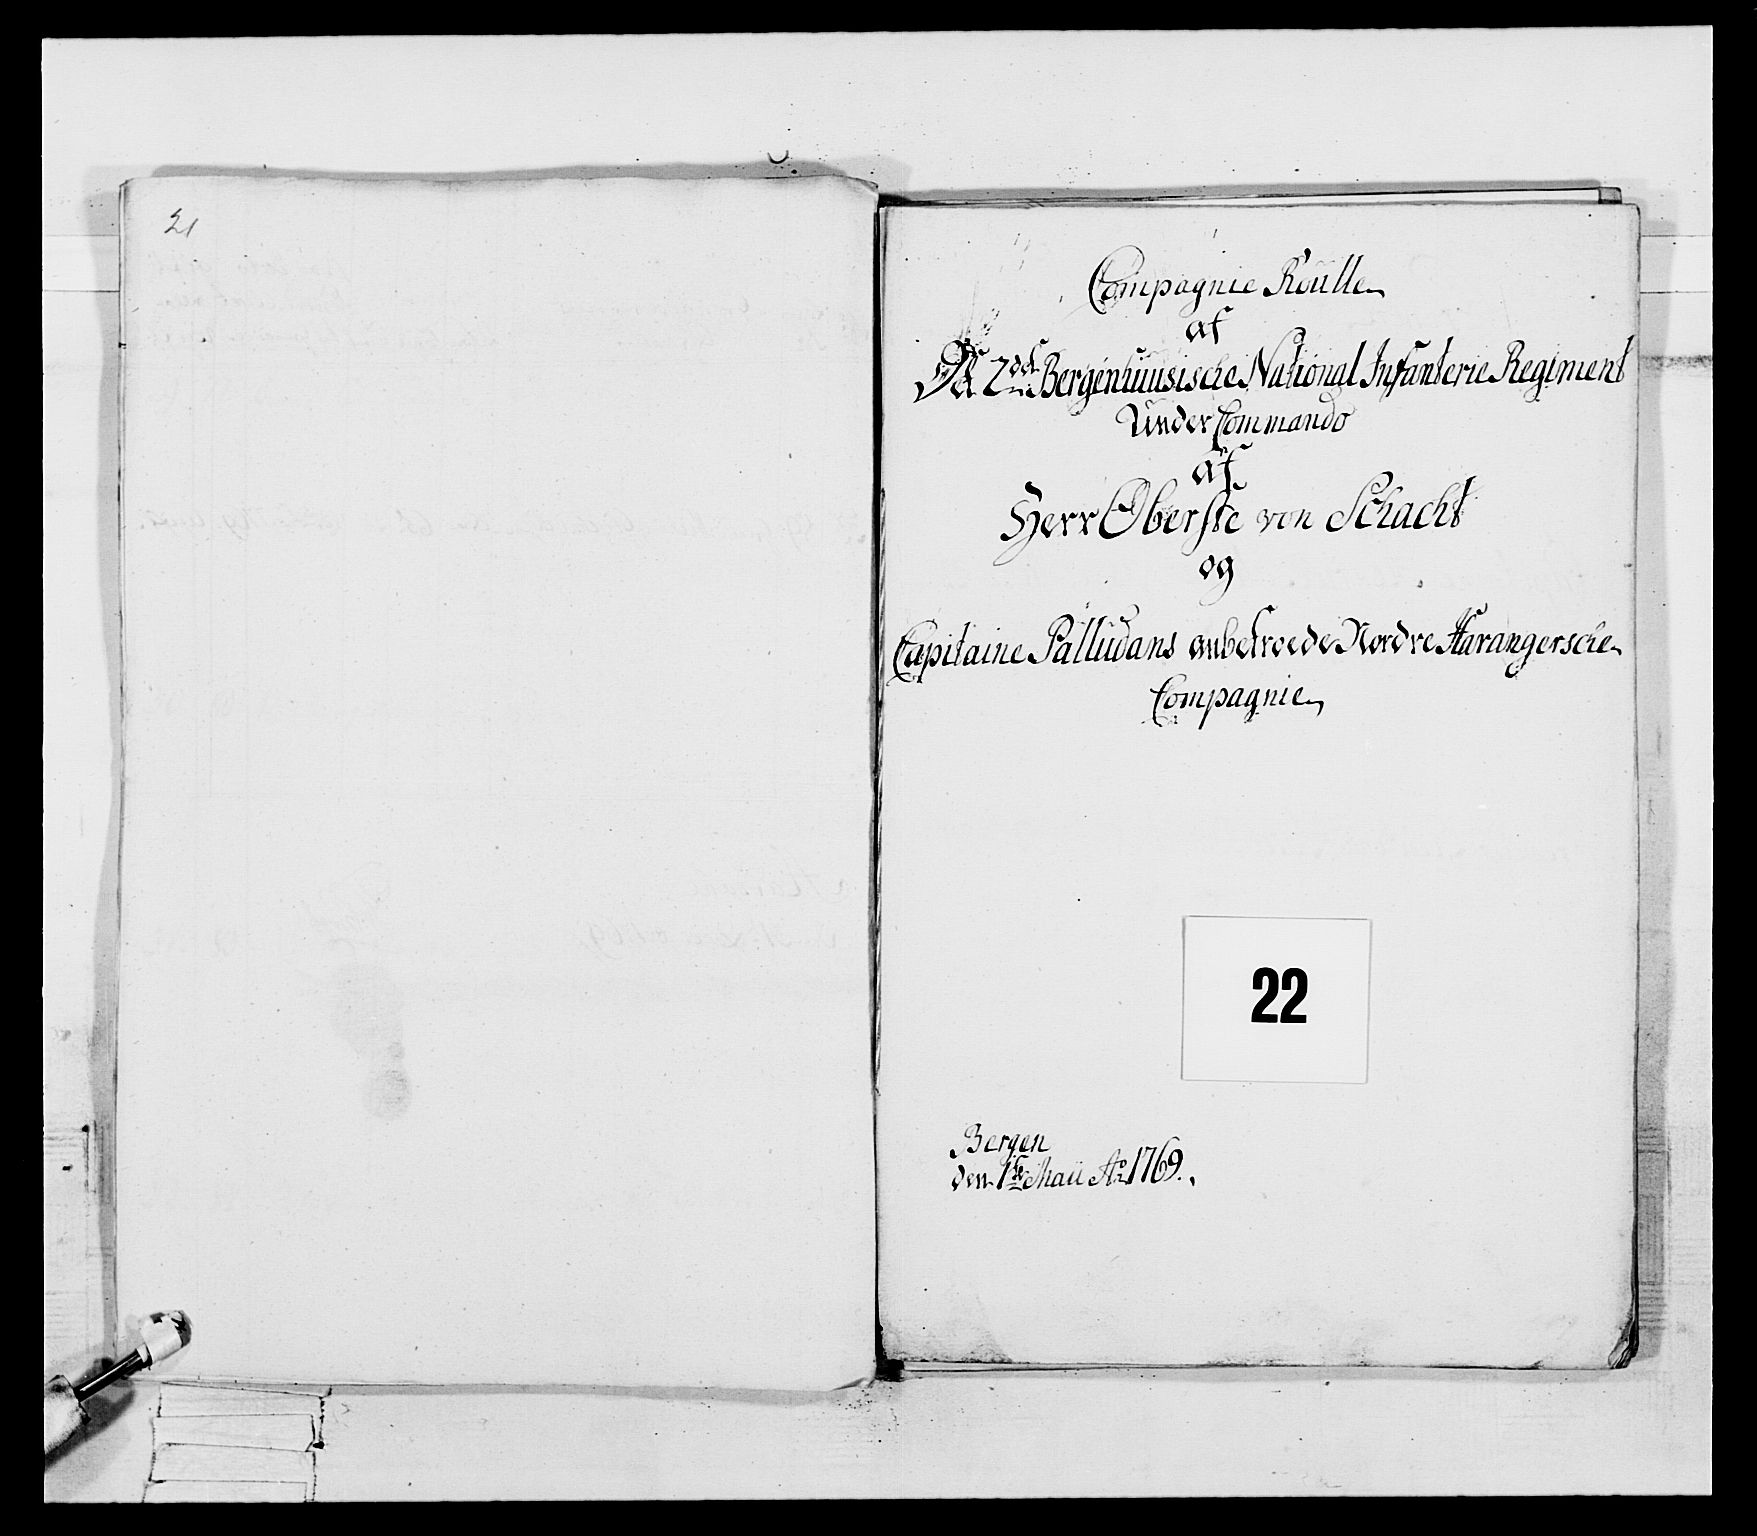 21
Compagnie Roulle
af
Dd 2det Bergenhuusische National Infanterie Regiment
Under Commando
af
Herr Oberste von Schacht
og
Capitaine Palludans anbetroede Nordre Harangersche
Compagnie
22
Bergen
den 1ste Maii Ao 1769.